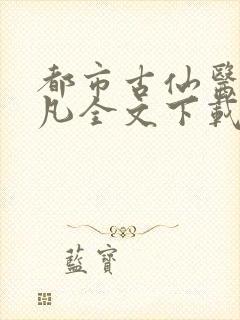 都市古仙醫
凡全文下載
藍寶